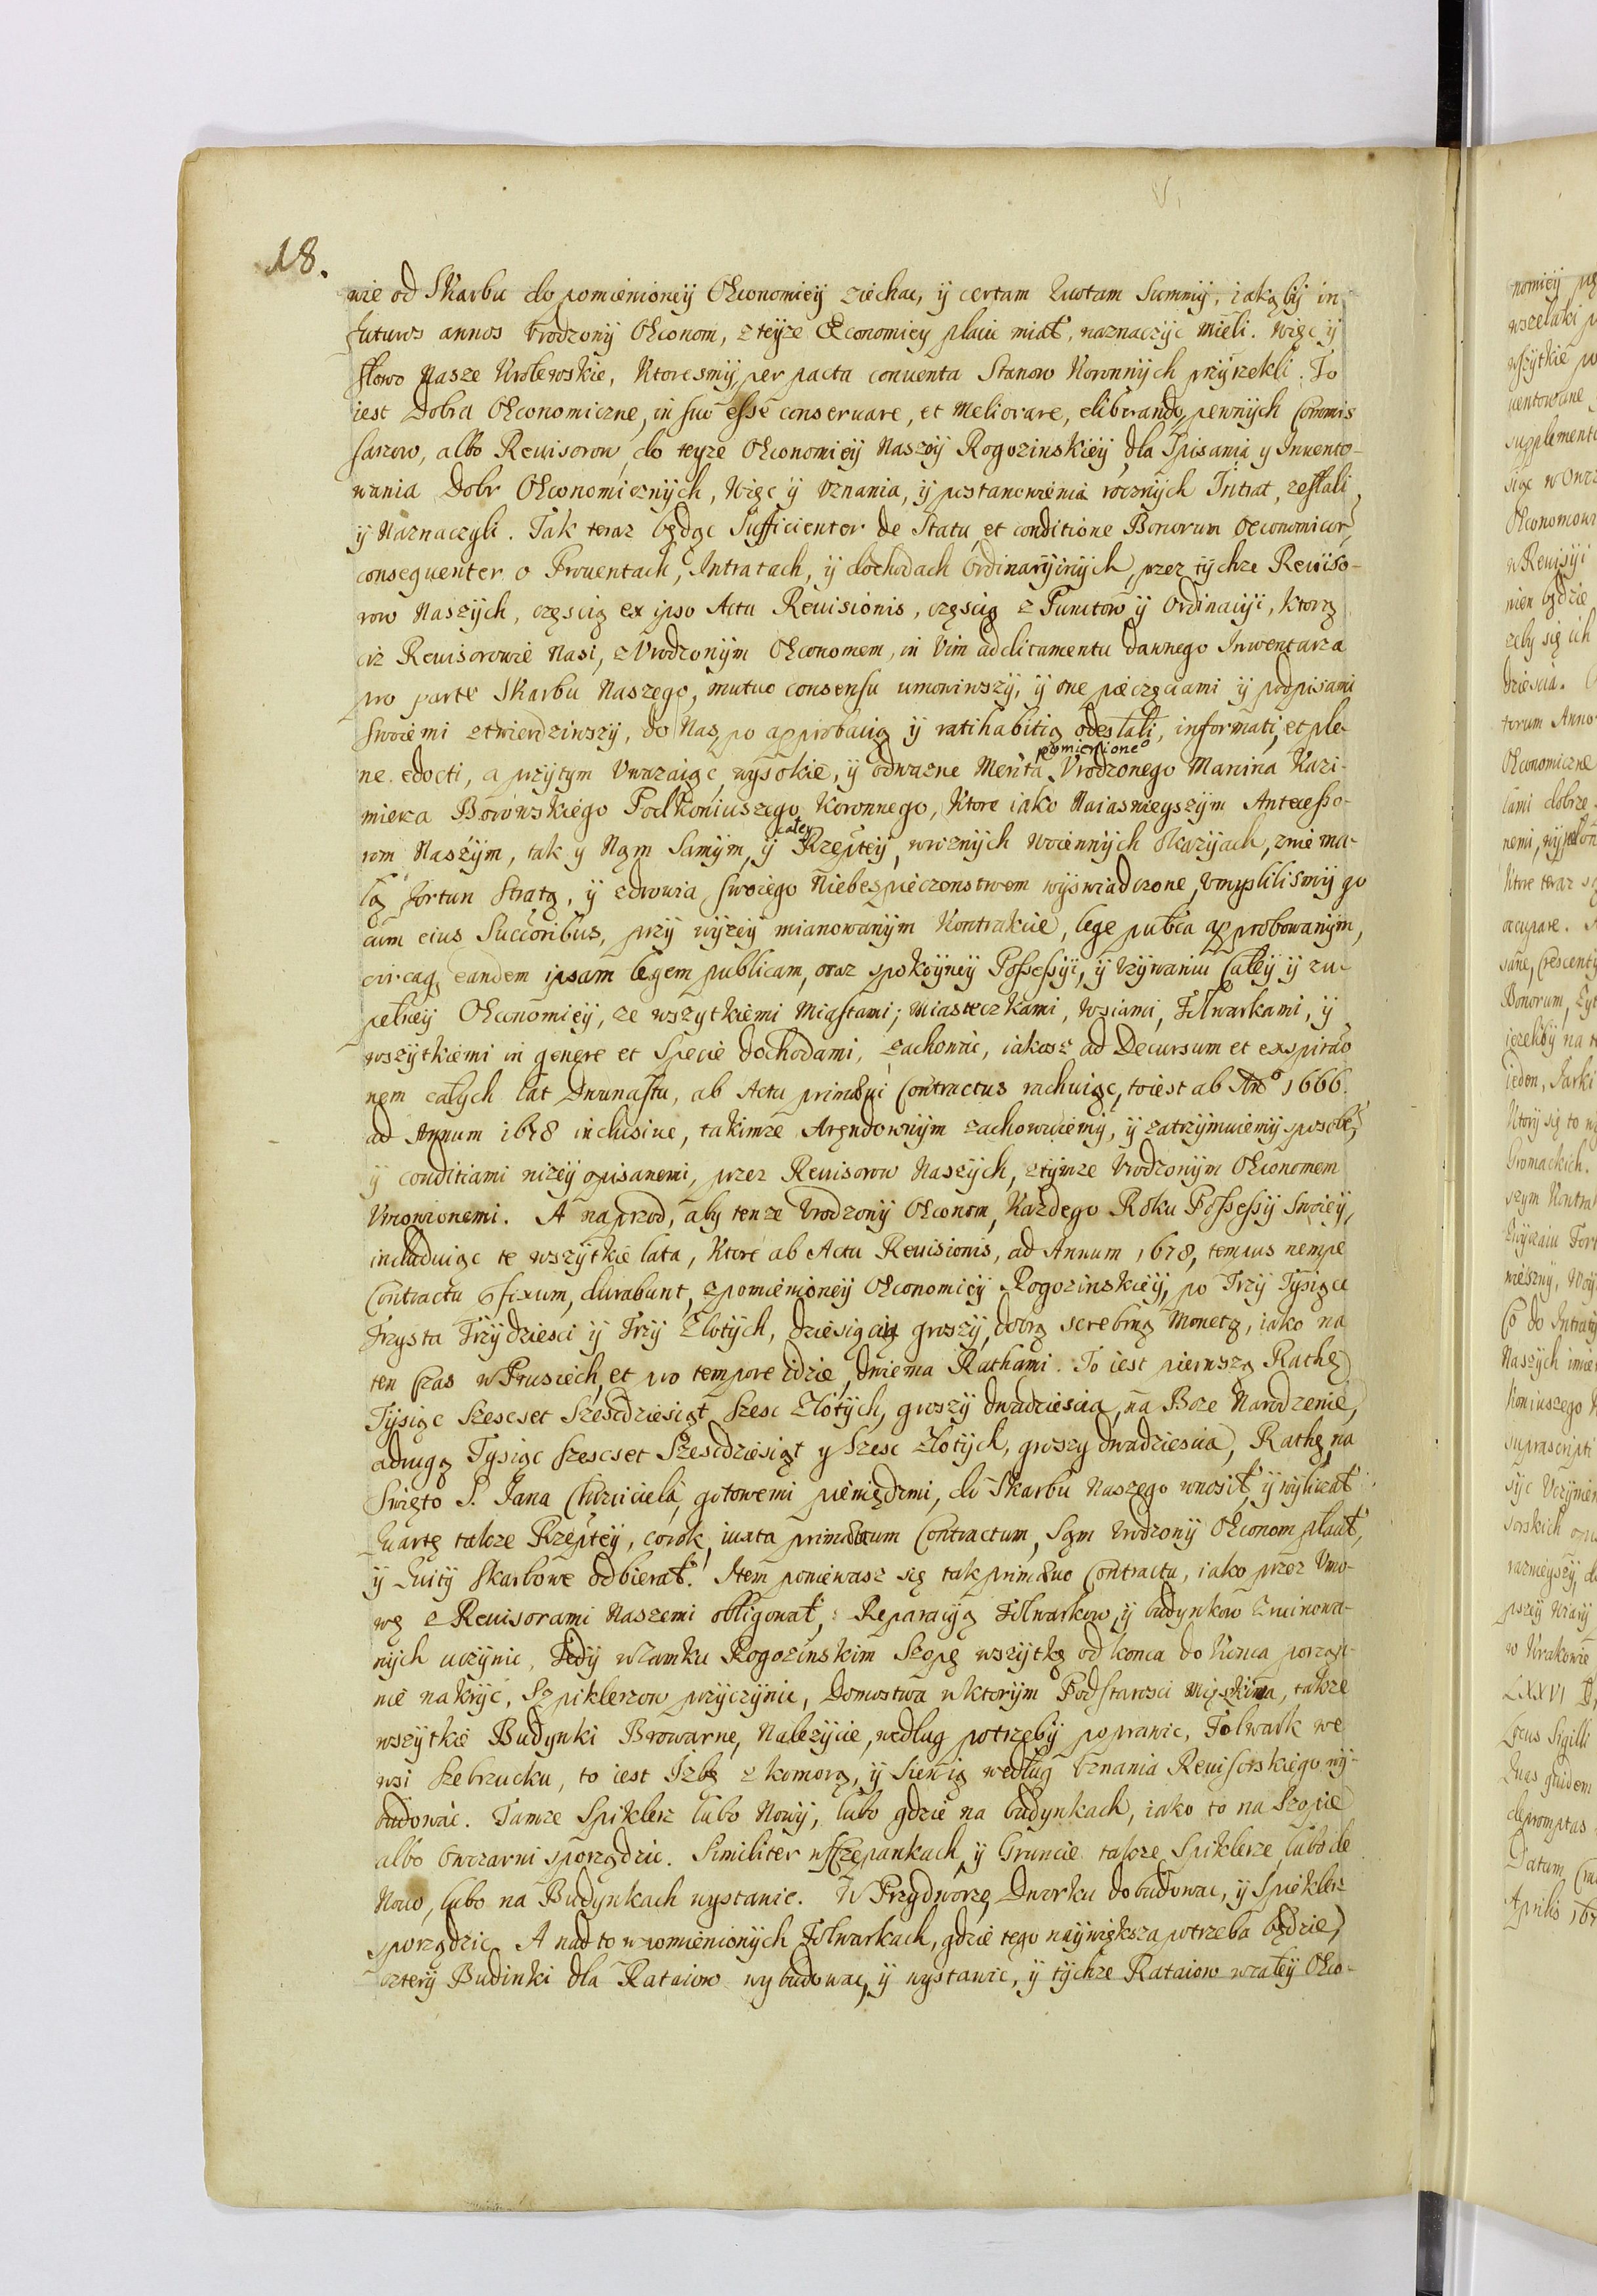 18.
nie od Skarbu do pomienioneÿ Œconomieÿ ziechac, ÿ certam Quotam Summÿ, iakąbÿ in
futuros annos Urodzonÿ Œconom, z teÿze Œconomiey płacic miał, naznaczÿc mieli. Więc ÿ
słowo Nasze Krolewskie, Ktoresmÿ per pacta conuenta Stanow Koronnÿch przÿrzekli. To
iest Dobra Œconomiczne, in suo esse conseruare, et meliorare, eliberando, pewnÿch Commis
sarzow, albo Reuisorow, do teyze Œconomieÿ Naszeÿ Rogozinskieÿ, dla Spisania y Inuento-
wania Dobr Œconomicznÿch, Więc ÿ Uznania, ÿ postanowienia rocznÿch Intrat, zesłali
ÿ Naznaczyli. Tak teraz będąc Sufficienter de Statu et conditione Bonorum Oeconomicor
consequenter o Prouentach, Intratach, ÿ dochodach Ordinarÿinÿch, przez tÿchze Reuiso-
row Naszÿch, częscią ex ipso Actu Reuisionis, częscią z Punctow ÿ Ordinaciÿi, Ktorą
ciz Reuisorowie Nasi, z Urodzonÿm Œconomem, in Vim additamentu dawnego Inwentarza
pro parte Skarbu Naszego, mutuo consensu umowiwszÿ, ÿ one pieczęciami ÿ podpisami
swoiemi ztwierdziwszÿ, do Nas po approbacią ÿ ratihabitią odesłali, informati et ple-
ne edocti, a przÿtym Uwazaiąc wysokie, ÿ odwazne Merita pomienione° Vrodzonego Marcina Kazi-
mierza Borowskiego Podkoniuszego Koronnego, Ktore iako Naiasnieyszÿm Antecesso-
rom Naszÿm, tak y Nąm Samÿm, ÿ całey Rzeptey, wroznÿch Woiennÿch Okazÿach, znie ma-
łą Fortun Stratą, ÿ zdrowia swoiego Niebespieczenstwem wÿswiadczone, Umyslilismÿ go
cum eius Succoribus, przÿ wÿzeÿ mianowanÿm Kontrakcie, lege publca approbowanÿm,
circaq eandem ipsam legem publicam, oraz spokoÿneÿ Possessÿi, ÿ Uzÿwaniu Całeÿ ÿ zu-
pełneÿ Œconomieÿ, ze wszytkiemi Miastami; Miasteczkami, Wsiami, Folwarkami, ÿ
wszÿtkiemi in genere et Specie dochodami, zachowac, iakosz ad Decursum et expirao
nem całych lat Dwunastu, ab Actu primaeui Contractus rachuiąc, toiest ab An° 1666.
ad Annum 1678 inclusiue, takimze Arędownÿm zachowuiemy, ÿ zatrzÿmuiemÿ sposobe,
ÿ conditiami nizeÿ opisanemi, przez Reuisorow Naszÿch, ztÿmze Urodzonÿm Œconomem
Umowionemi. A naprzod, aby tenze Urodzonÿ Œconom, Kazdego Roku Possessÿ Swoieÿ,
includuiąc te wszÿtkie lata, Ktore ab Actu Reuisionis, ad Annum 1678, temius nempe
Contractu pfixum, durabunt, zpomienioneÿ Œconomieÿ Rogozinskieÿ, po Trzÿ Tÿsiące
Trzysta Trzÿdziesci ÿ Trzÿ Złotÿch, dziesięciu groszÿ, dobrą serebrną Monetą, iako na
ten Czas w Prusiech, et pro tempore idzie, dwiema Rathami. To iest pierwszą Rathę
Tÿsiąc Szescset Szescdziesiąt Szesc Złotÿch, groszÿ dwadziescia, na Boze Narodzenie,
adrugą Tysiąc Szescset Szescdziesiąt y Szesc Złotÿch, groszy dwadziescia, Rathę, na
Swięto S. Jana Chrzciciela, gotowemi pieniędzmi, do Skarbu Naszego wnosił, ÿ wÿliczał
Quartę takze Rzeptey, corok, iuxta primaeuum Contractum, Sąm Urodzonÿ Œconom płacił,
ÿ Quitÿ Skarbowe odbierał. Item poniewasz się tak primaeuo Contractu, iako przez Umo-
wę z Reuisorami Naszemi obligował, Reparacÿą Folwarkow, ÿ budynkow Zruinowa-
nÿch uczÿnic, Tedÿ w Zamku Rogozinskim Szopę wszÿtkę od konca do Konca porząd-
nie nakrÿc, Szpiklerzow przÿczÿnic, Domostwa w ktorÿm Podstarosci Mięszkiwa, takze
wszÿtkie Budynki Browarne, Nalezÿcie, według potrzebÿ poprawic, Folwark we
wsi Szebrucku, to iest Izbę z komorą, ÿ Sienią według Uznania Reuisorskiego wÿ-
budowac. Tamze Spiklerz lubo Nowÿ, lubo gdzie na budynkach, iako to na Szopie
albo Owczarni sporządzic. Similiter w Szczepankach, ÿ Gruncie takze Spiklerze, lubo de
Nouo, lubo na Budÿnkach wystawic. W Przÿdworzę Dworku dobudowac, ÿ Spieklerz
sporządzic, A nad to wpomienionÿch Folwarkach, gdzie tego naÿwiększa potrzeba będzie,
czterÿ Budinki dla Rataiow wybudowac, ÿ wystawic, ÿ tÿchze Rataiow wcałeÿ Œco-